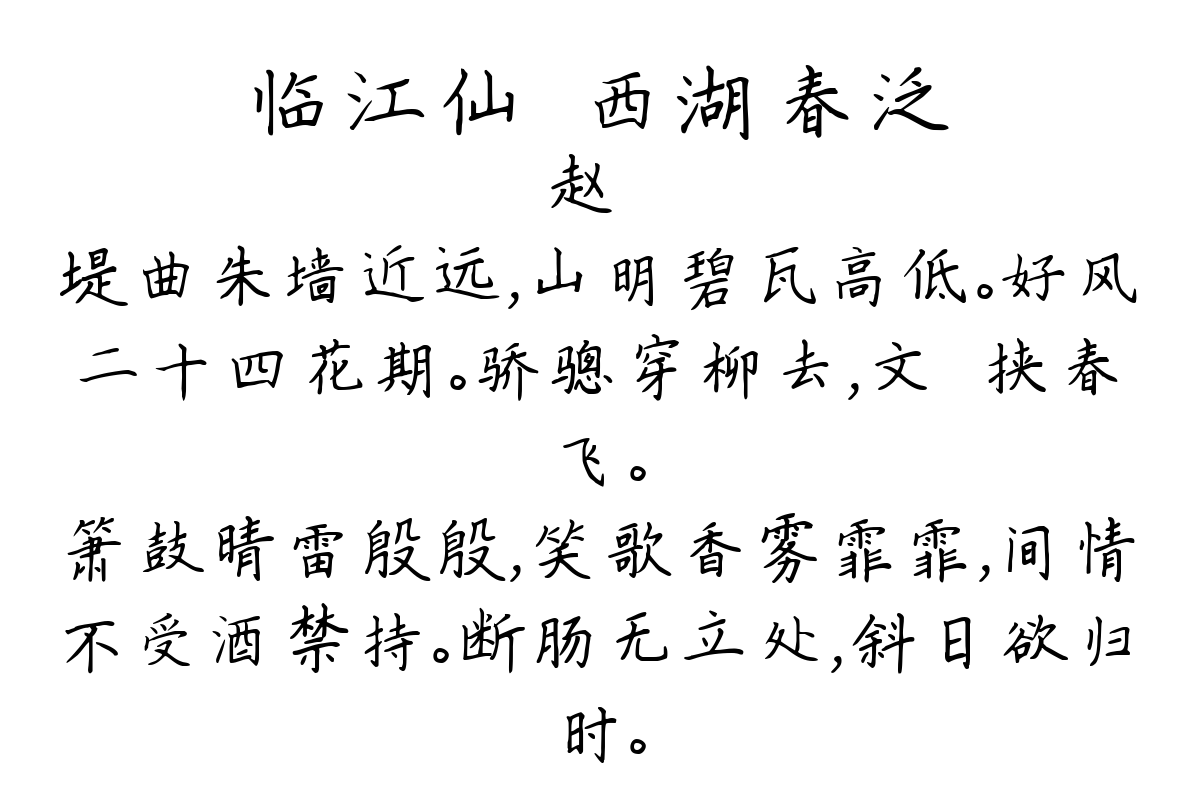 临江仙 西湖春泛
赵
堤曲朱墙近远,山明碧瓦高低。好风
二十四花期。骄骢穿柳去,文 挟春
飞。
箫鼓晴雷殷殷,笑歌香雾霏霏,间情
不受酒禁持。断肠无立处,斜日欲归
时。